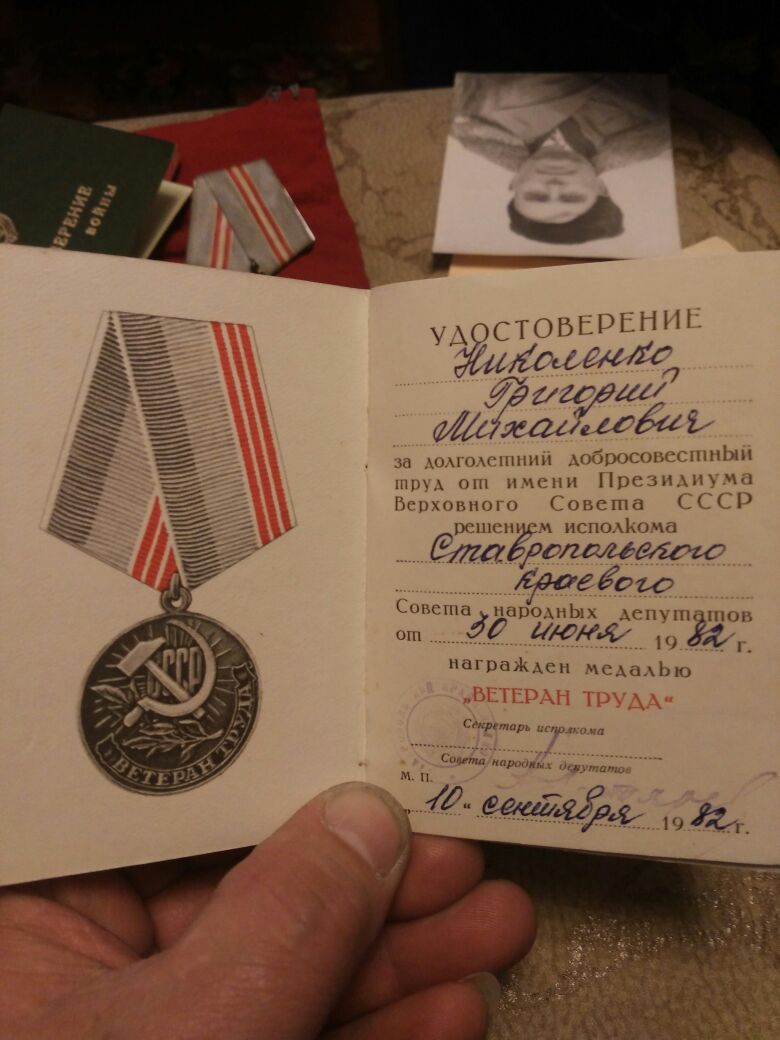 ЕРЕНИЕ
ВОЙНЫ
СССР
ВЕТЕРАН ТРУДА
УДОСТОВЕРЕНИЕ
Николенко
Григорий
Михайлович
за долголетний добросовестный
труд от имени Президиума
Верховного Совета СССР
решением исполкома
Ставропольского
краевого
Совета народных депутатов
от 30 июня 1982 г.
награжден медалью
„ВЕТЕРАН ТРУДА“
Секретарь исполкома
Совета народных депутатов
М. П.
„10“ сентября 1982 г.